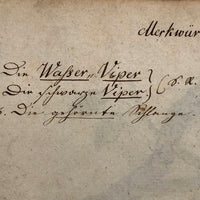 Merkwür
Die Waßer Viper
Die schwarze Viper } (S. a.
Die gehörnte Schlange.